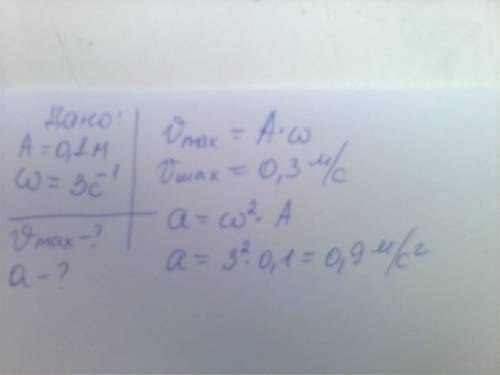 Дано:
A = 0,1м
ω = 3с⁻¹
υmax - ?
a - ?
υmax = A·ω
υmax = 0,3 м/с
a = ω²· A
a = 3²·0,1 = 0,9 м/с²